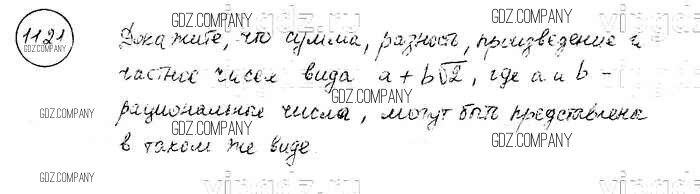 1121
Докажите, что сумма, разность, произведение и
частное чисел вида a + b√2, где a и b -
рациональные числа, могут быть представлена
в таком же виде.
GDZ.COMPANY
GDZ.COMPANY
GDZ.COMPANY
GDZ.COMPANY
GDZ.COMPANY
GDZ.COMPANY
GDZ.COMPANY
GDZ.COMPANY
GDZ.COMPANY
GDZ.COMPANY